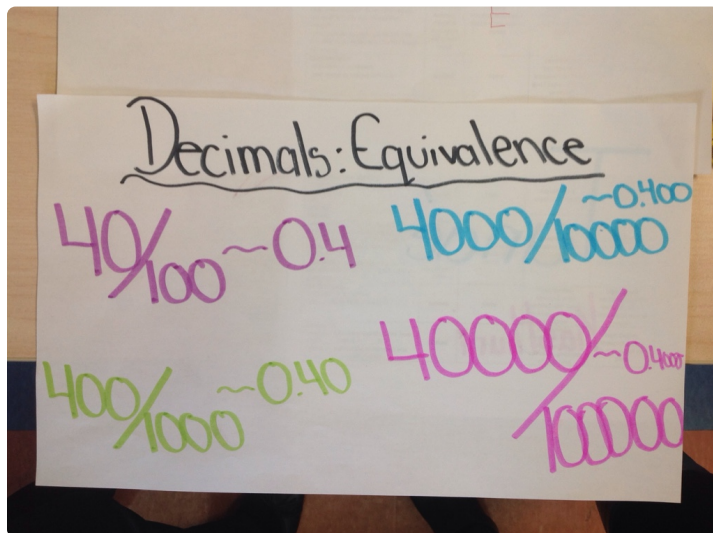 E
Decimals: Equivalence
40/100 ~ 0.4
4000/10000 ~ 0.400
400/1000 ~ 0.40
40000/100000 ~ 0.4000